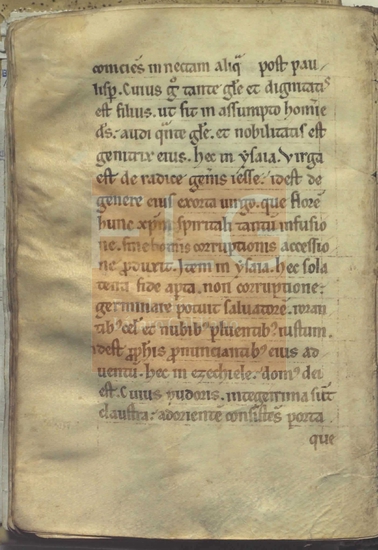 conicies in nectam aliq̄ post pau
lisp̄. Cuius g̊ tante gl̄e et dignitatis
est filius. ut sit in assumpto homīe
d̄s. audi qn̄te gl̄e. et nobilitatis est
genitrix eius. hec in ẏsaia. Virga
est de radice gen̄is iesse. idest de
genere eius exorta uirgo. que florē
hunc xp̄m spiritali tantū infusio
ne. sine hōinis corruptionis accessio
ne ꝓduxit. Item in ẏsaia. hec sola
terra fide apta. non corruptione.
germinare potuit saluatorē. roran
tibꝰ cel̄ et nubibꝰ pluentibꝰ iustum.
idest ꝓphis ꝓnunciantibꝰ eius ad
uentū. hec in ezechiele. domꝰ dei
est. Cuius pudoris. integerrima sūt
claustra. ad orientē consistēs porta
que